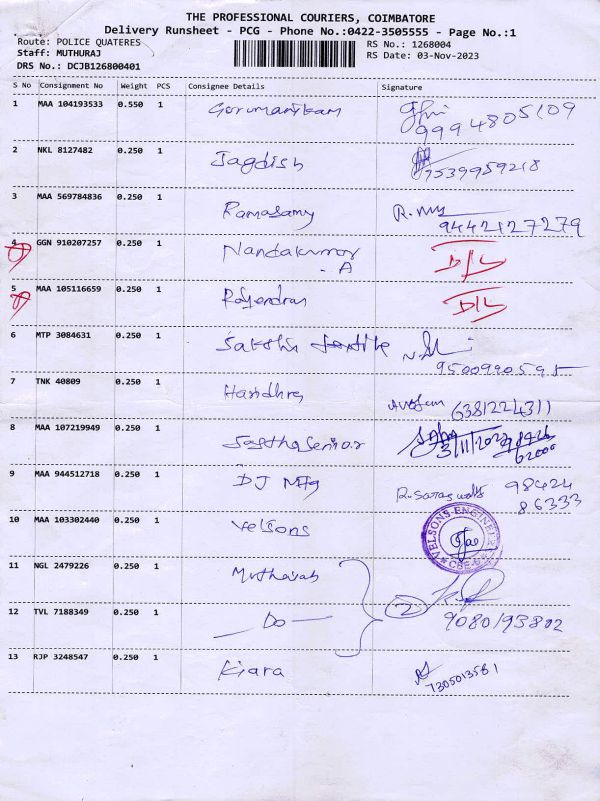 THE PROFESSIONAL COURIERS, COIMBATORE
Delivery Runsheet - PCG - Phone No.:0422-3505555 - Page No.:1
Route: POLICE QUATERES
RS No.: 1268004
Staff: MUTHURAJ
RS Date: 03-Nov-2023
DRS No.: DCJB126800401
S No Consignment No Weight PCS Consignee Details Signature
1 MAA 104193533 0.550 1
9994805109
2 NKL 8127482 0.250 1 Jagdish
7539959218
3 MAA 569784836 0.250 1 Ramasamy
9442127279
4 GGN 910207257 0.250 1 Nandakumar D/L
- A
5 MAA 105116659 0.250 1 Rajendran D/L
6 MTP 3084631 0.250 1 Sakthi textile
9500990595
7 TNK 40809 0.250 1
6381224311
8 MAA 107219949 0.250 1
3/11/2023 98426
62000
9 MAA 944512718 0.250 1 DJ Mfg 98424
86333
10 MAA 103302440 0.250 1 Velsons
VELSONS ENGINEERS
CBE-6
11 NGL 2479226 0.250 1
12 TVL 7188349 0.250 1 — Do — 2
9080193802
13 RJP 3248547 0.250 1 Kiara
7305013581